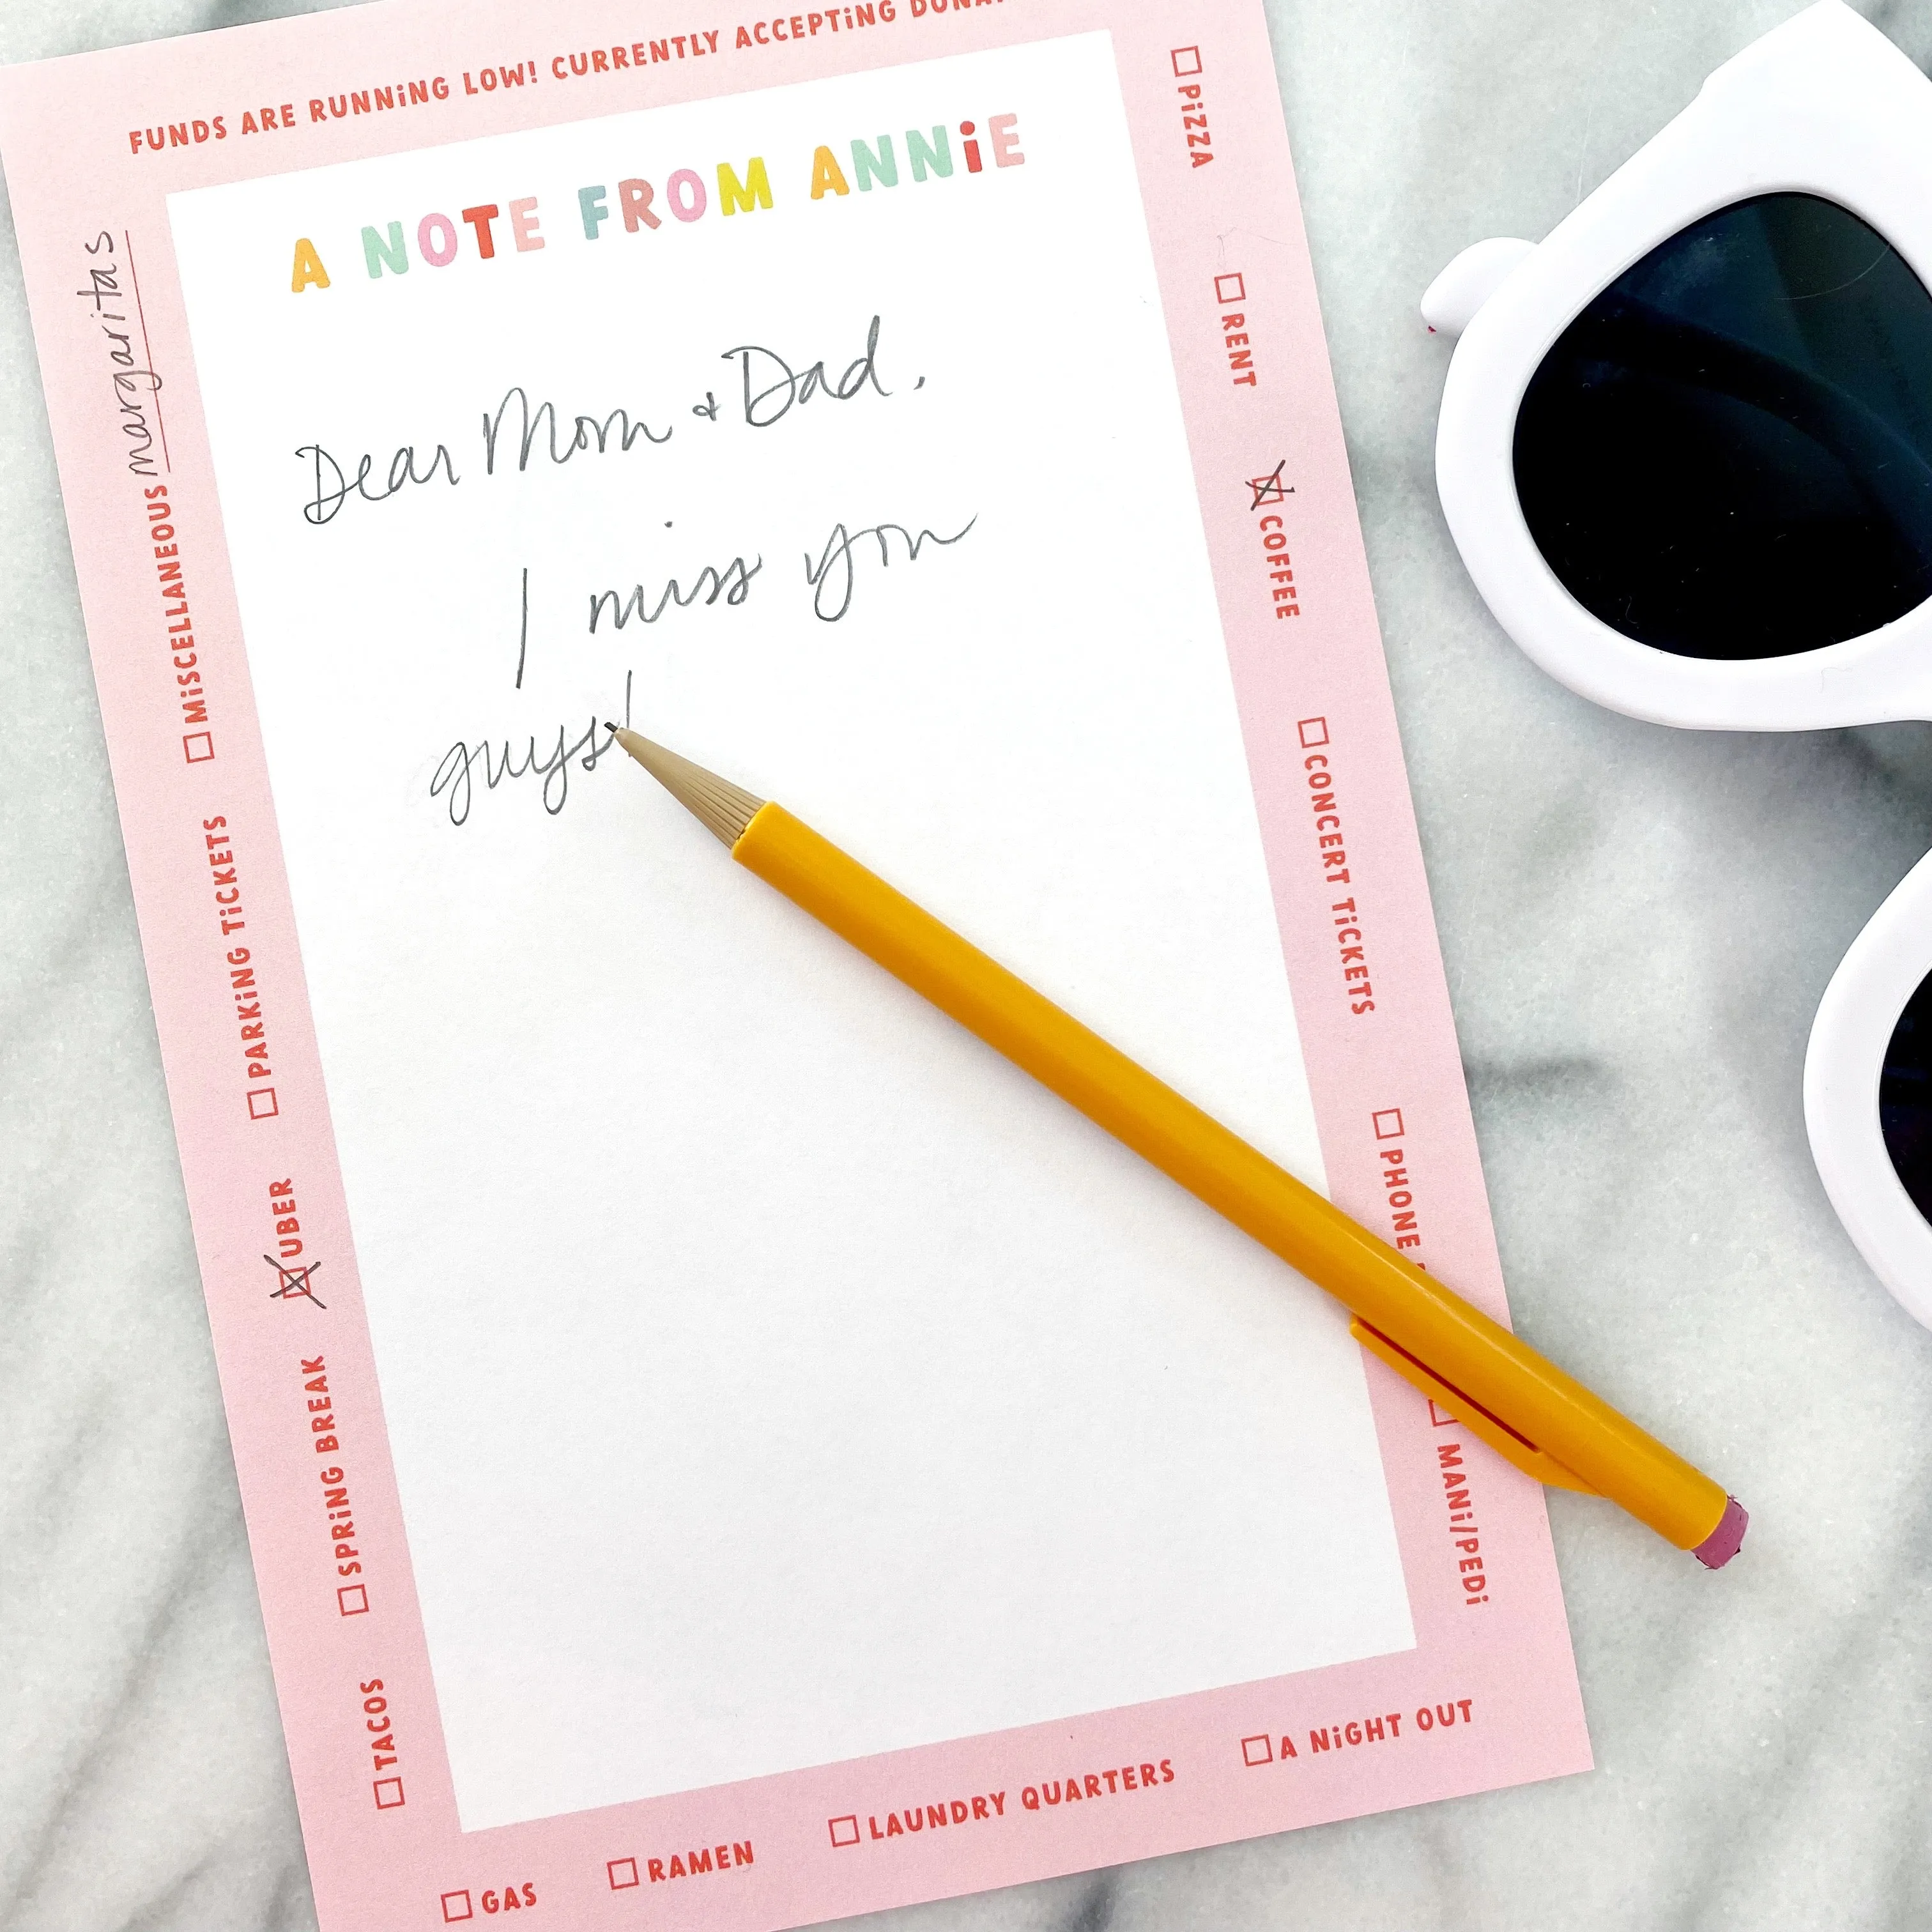 FUNDS ARE RUNNiNG LOW! CURRENTLY ACCEPTiNG
A NOTE FROM ANNiE
Dear Mom + Dad,
I miss you
guys!
PiZZA
RENT
COFFEE
CONCERT TiCKETS
PHONE
MANi/PEDi
A NiGHT OUT
LAUNDRY QUARTERS
RAMEN
GAS
TACOS
SPRiNG BREAK
UBER
PARKiNG TiCKETS
MiSCELLANEOUS margaritas